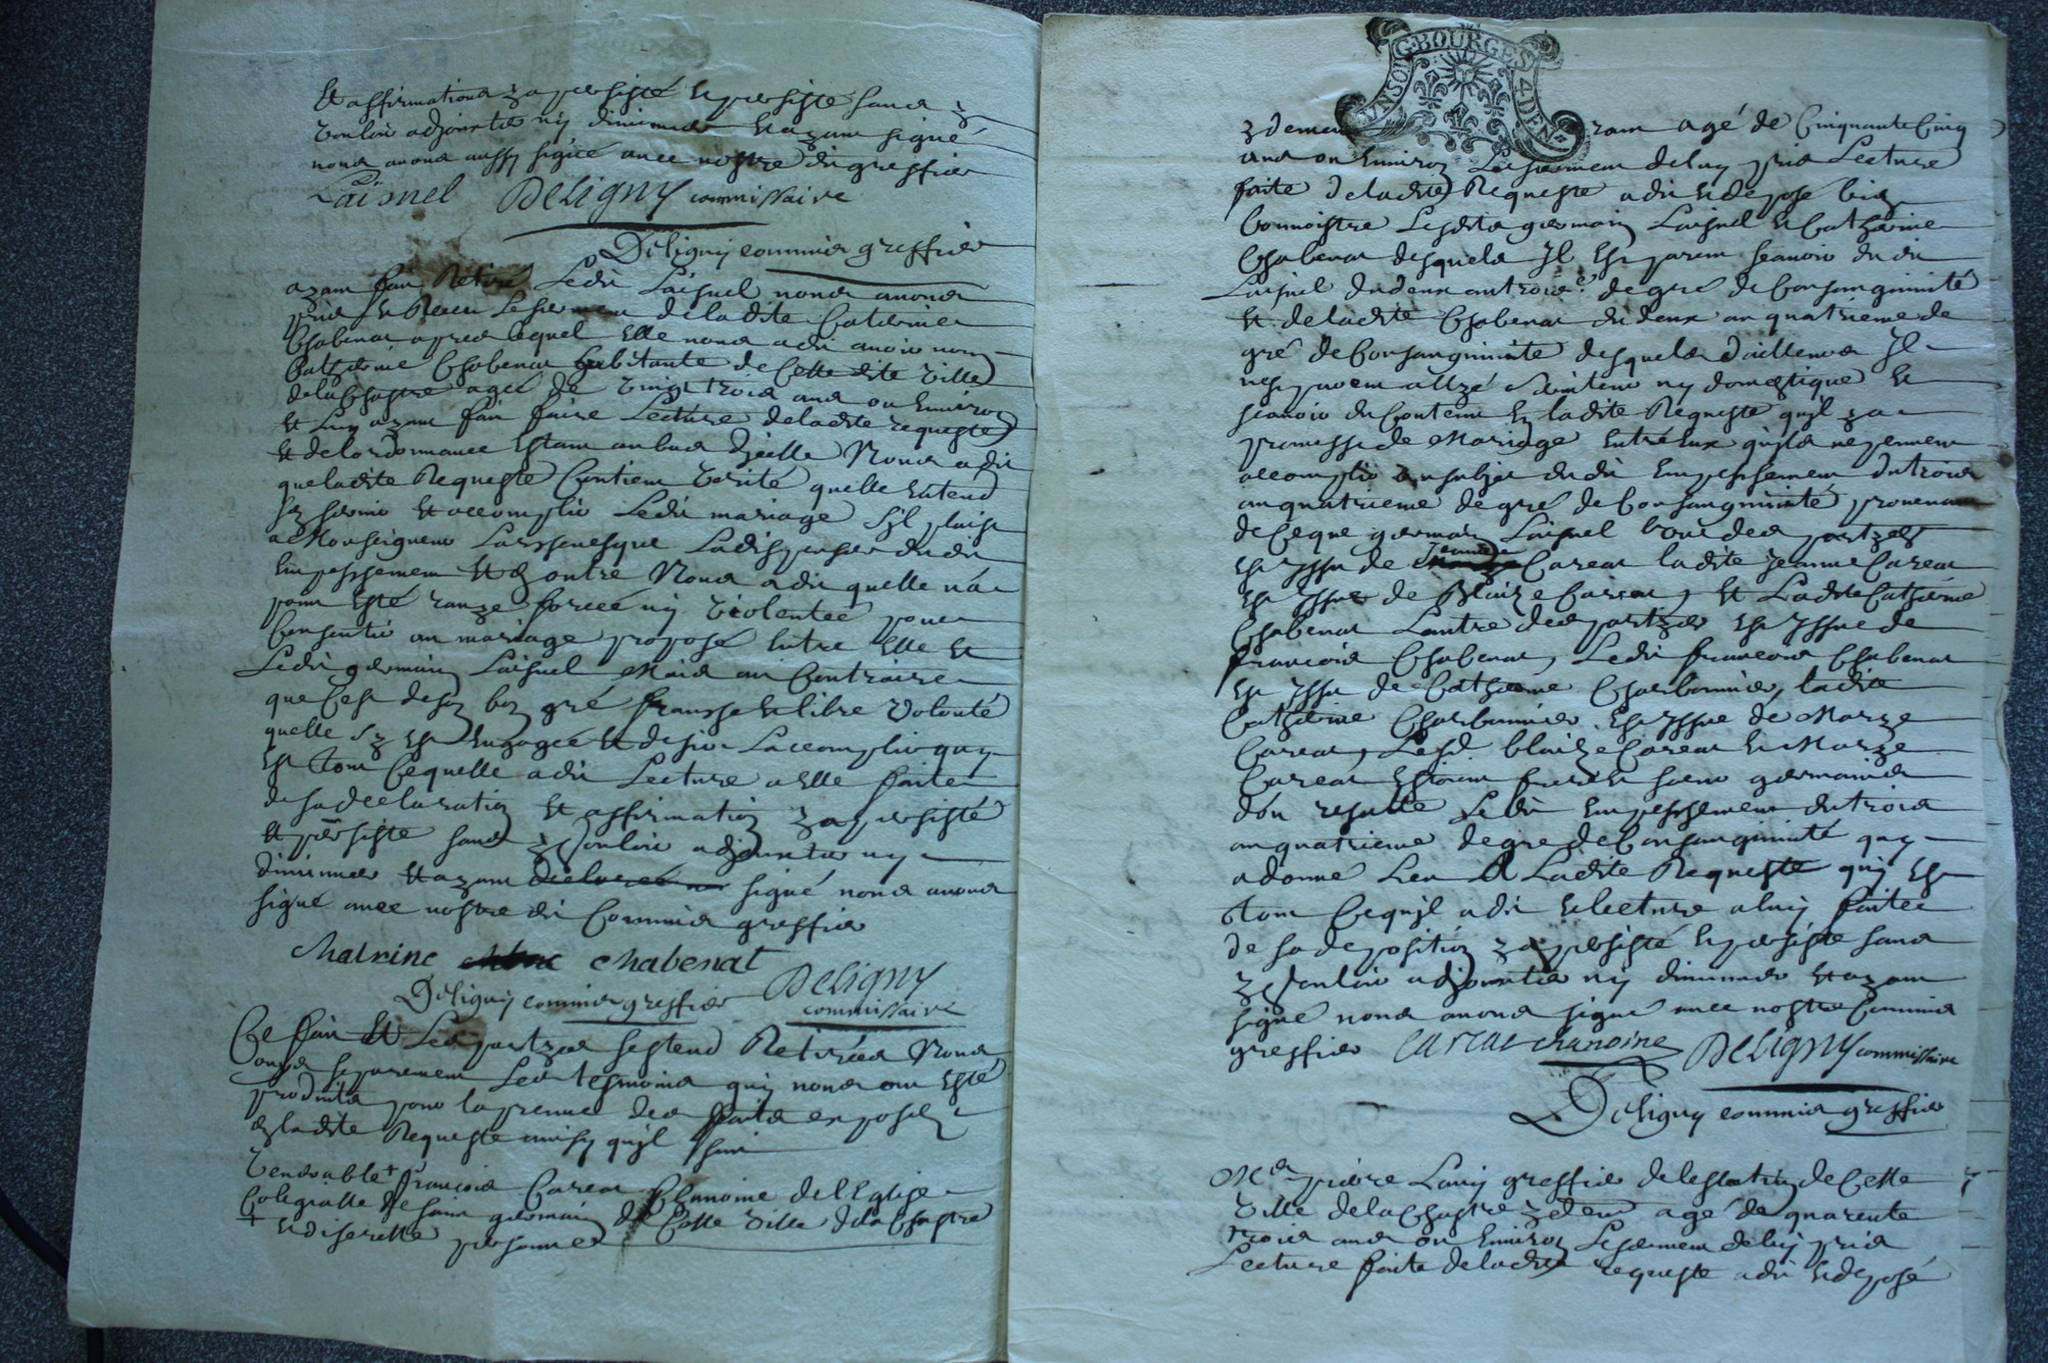 Et affirmation y a persisté Et persiste sans y
vouloir adjouster ny diminuer Et ayant signé
nous avons aussy signé avec nostre dit greffier
Laisnel DeLigny commissaire
Deligny commis greffier
ayant fait Retiré Ledit Laisnel nous avons
pris Et Receu Le serment de ladite Catherine
Chabenat apres lequel Elle nous a dit avoir nom
Catherine Chabenat habitante de Cette dite ville
de la Chastre agée de vingt trois ans ou Environ
Et Luy ayant fait faire Lecture de ladite requeste
Et de lordonnance Estant au bas d'icelle Nous a dit
que ladite Requeste Contient verité quelle Entend
Et accomplir Ledit mariage s'il plaist
a Monseigneur Larchevesque La dispenser dudit
Empeschement Et en outre Nous a dit quelle n'a
point Esté forcée ny violentée pour
Consentir au mariage proposé Entre Elle Et
Ledit germain Laisnel Mais au Contraire
que C'est de son bon gré franche Et libre volonté
quelle s'y Est Engagée Et desire L'accomplir quy
Est tout Ce quelle a dit Lecture a Elle faitte
de sa declaration Et affirmation y a persisté
Et persiste sans y vouloir adjouster ny
diminuer Et ayant signé nous avons
signé avec nostre dit Commis greffier
Chatrine Chabenat
Deligny commis greffier DeLigny
commissaire
Ce fait Et Les partyes s'estend Retirées Nous
avons separement Les tesmoins quy nous ont Esté
produits pour la preuve des faits exposez
en ladite Requeste ainsy qu'il suit
Venerable + françois Carcat Chanoine de l'Eglise
Colegialle de saint germain de Cette ville de la Chastre
+ Et discrette personne
UN SOL G. BOURGES 4 DEN.
y demeurant agé de Cinquante Cinq
ans ou Environ Le serment de luy pris Lecture
faite de ladite Requeste a dit Et deposé bien
Connoistre Lesdits germain Laisnel Et Catherine
Chabenat desquels Il Est parent scavoir dudit
Laisnel du deux au trois.e degré de Consanguinité
Et de ladite Chabenat du deux au quatrieme de
gré de Consanguinité desquels d'ailleurs Il
n'est point allyé serviteur ny domestique Et
scavoir du Contenu En ladite Requeste qu'il y a
promesse de Mariage Entr'Eux qu'ils ne peuvent
accomplir au subjet dudit Empeschement du trois
au quatrieme degré de Consanguinité provenant
de Ce que germain Laisnel l'une des partyes
Est Issu de Jeanne Carcat ladite Jeanne Carcat
Est Issue de Blaize Carcat, Et Ladite Catherine
Chabenat L'autre des partyes Est Issue de
françois Chabenat, Ledit françois Chabenat
Est Issu de Catherine Charbonnier, ladite
Catherine Charbonnier Est Issue de Marye
Carcat, Lesd. blaize Carcat Et Marye
Carcat Estoient frere Et soeur germains
d'ou resulte Ledit Empeschement du trois
au quatrieme degré de Consanguinité quy
a donné Lieu A Ladite Requeste quy Est
tout Ce qu'il a dit Et lecture a luy faitte
de sa deposition y a persisté Et persiste sans
y vouloir adjouster ny diminuer Et ayant
signé nous avons signé avec nostre Commis
greffier Carcat chanoine DeLigny commissaire
Deligny commis greffier
Me pierre Louis greffier de l'Eslection de Cette
Ville de la Chastre y demt agé de quarente
trois ans ou Environ Le serment de luy pris
Lecture faite de ladite requeste a dit Et deposé